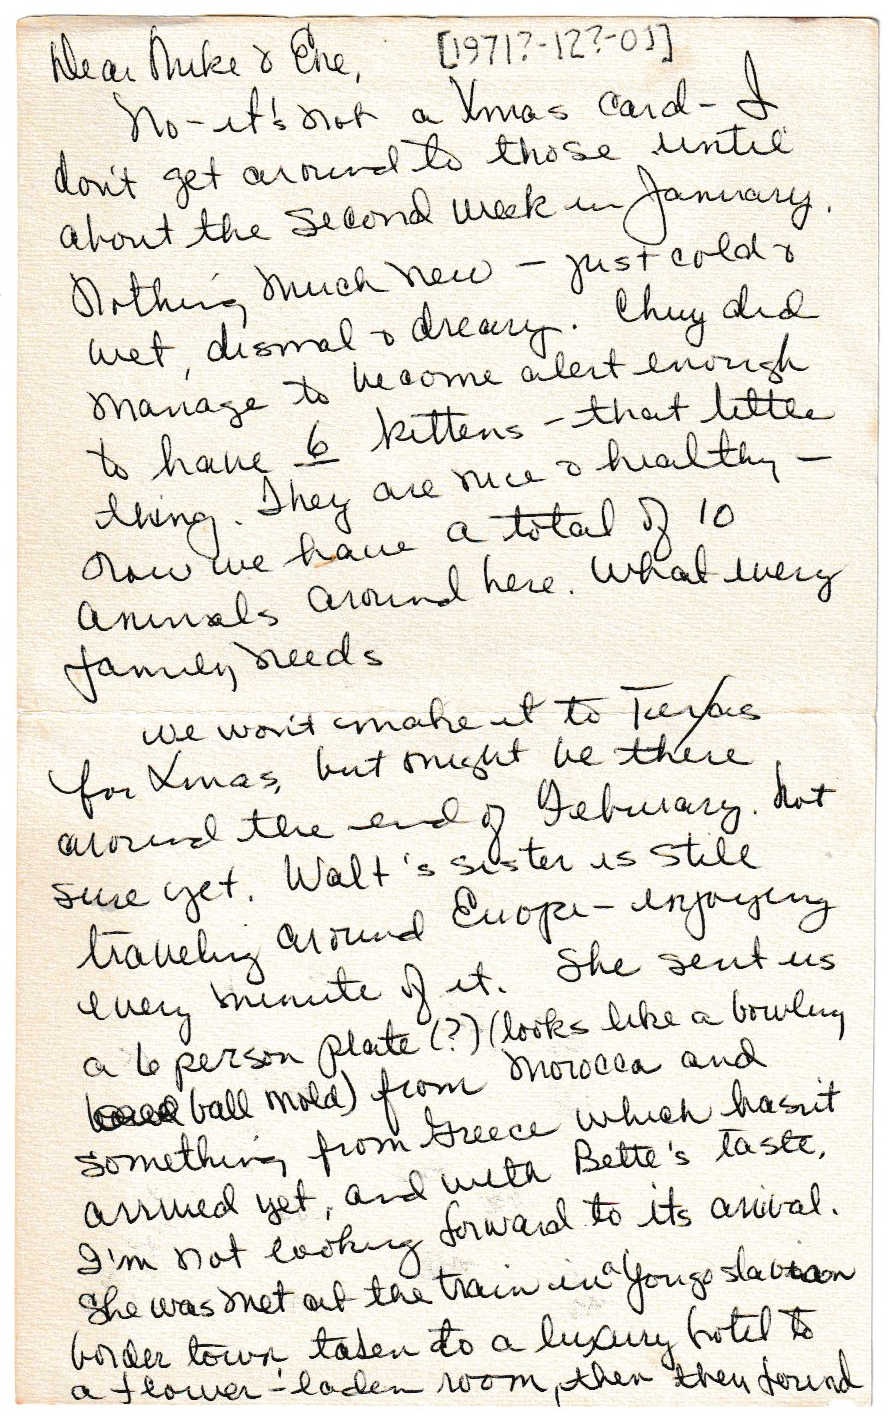 Dear Mike & Ene, [1971?-12?-01]
No - it's not a Xmas card - I
don't get around to those until
about the second week in January.
Nothing much new - just cold &
wet, dismal & dreary. Chuy did
manage to become alert enough
to have 6 kittens - that little
thing. They are nice & healthy -
now we have a total of 10
animals around here. What every
family needs
We won't make it to Texas
for Xmas, but might be there
around the end of February. Not
sure yet. Walt's sister is still
traveling around Europe - enjoying
every minute of it. She sent us
a 6 person plate (?) (looks like a bowling
ball mold) from Morocca and
something from Greece which hasn't
arrived yet, and with Bette's taste,
I'm not looking forward to its arrival.
She was met at the train in a Yougoslavian
border town taken to a luxury hotel to
a flower-laden room, then they found